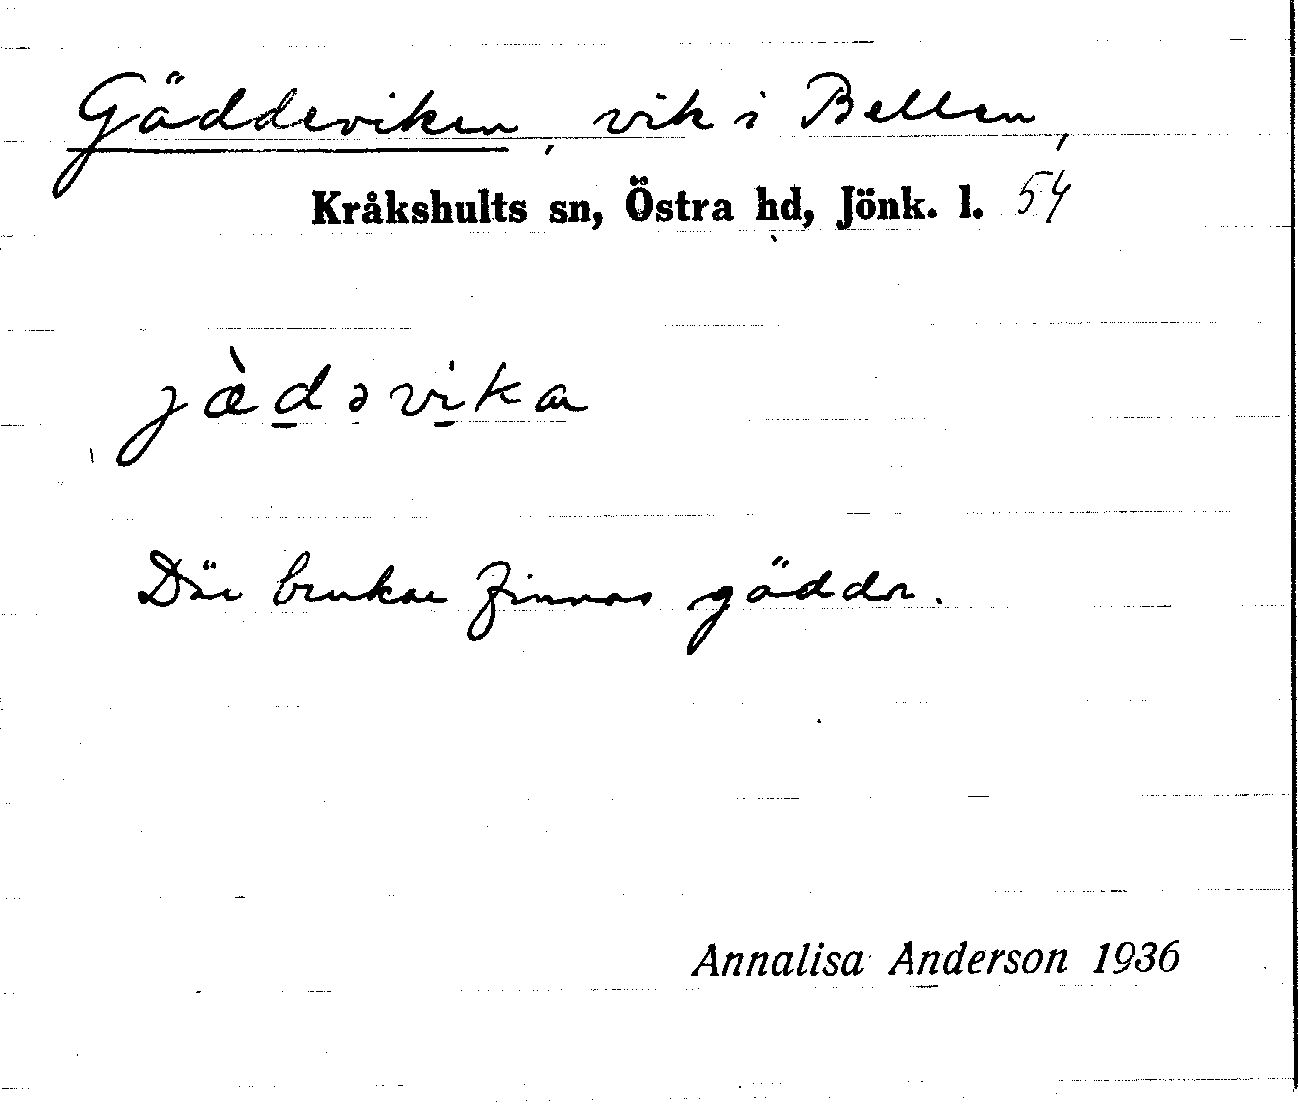 Gäddeviken, vik i Bellen,
Kråkshults sn, Östra hd, Jönk. l. 54
jæ̀d̲əvi̲ka
Där brukar finnas gäddor.
Annalisa Anderson 1936